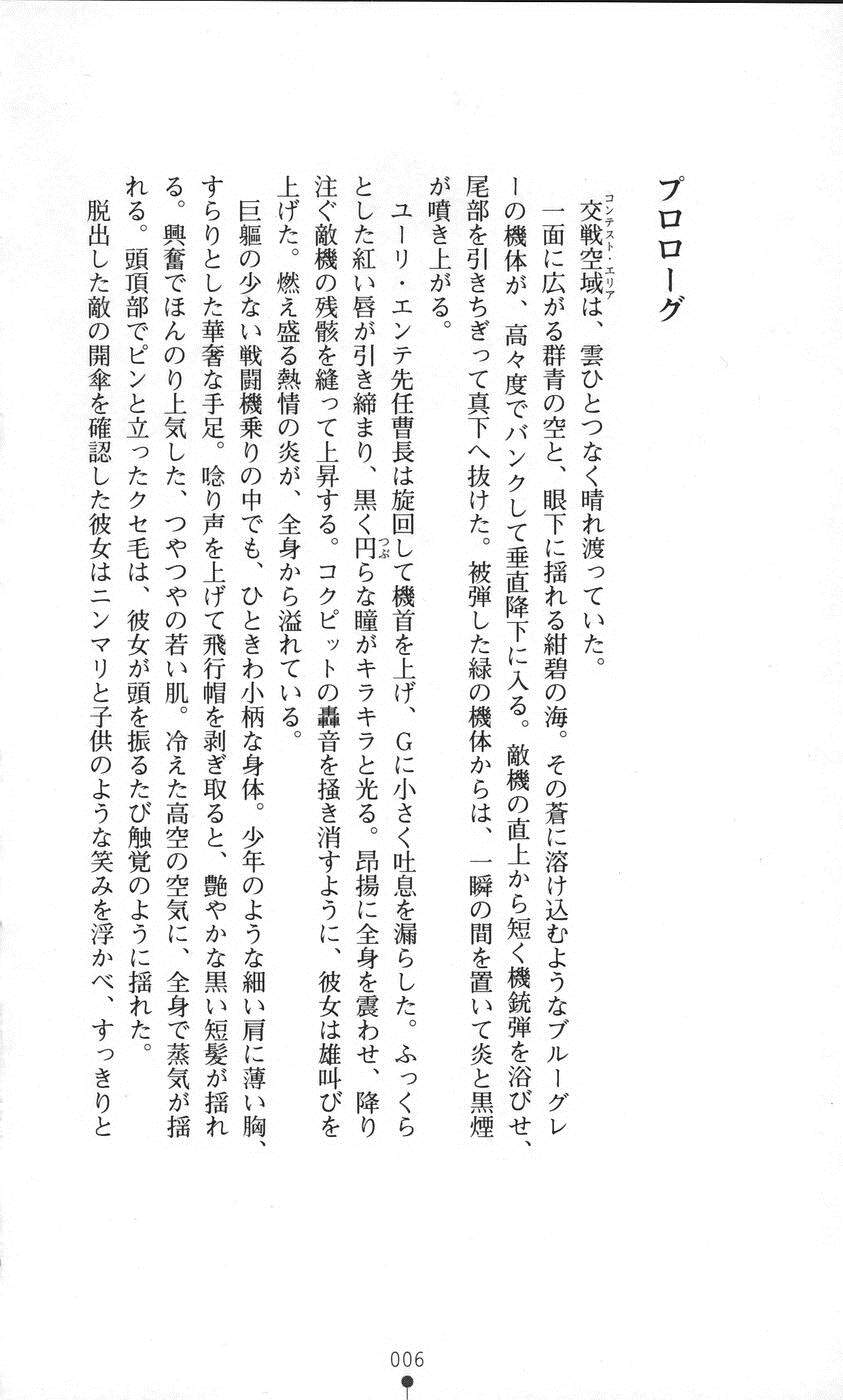 プロローグ
交戦空域は、雲ひとつなく晴れ渡っていた。
コンテスト・エリア
一面に広がる群青の空と、眼下に揺れる紺碧の海。その蒼に溶け込むようなブルーグレ
ーの機体が、高々度でバンクして垂直降下に入る。敵機の直上から短く機銃弾を浴びせ、
尾部を引きちぎって真下へ抜けた。被弾した緑の機体からは、一瞬の間を置いて炎と黒煙
が噴き上がる。
ユーリ・エンテ先任曹長は旋回して機首を上げ、Gに小さく吐息を漏らした。ふっくら
とした紅い唇が引き締まり、黒く円らな瞳がキラキラと光る。昂揚に全身を震わせ、降り
つぶ
注ぐ敵機の残骸を縫って上昇する。コクピットの轟音を掻き消すように、彼女は雄叫びを
上げた。燃え盛る熱情の炎が、全身から溢れている。
巨軀の少ない戦闘機乗りの中でも、ひときわ小柄な身体。少年のような細い肩に薄い胸、
すらりとした華奢な手足。唸り声を上げて飛行帽を剥ぎ取ると、艶やかな黒い短髪が揺れ
る。興奮でほんのり上気した、つやつやの若い肌。冷えた高空の空気に、全身で蒸気が揺
れる。頭頂部でピンと立ったクセ毛は、彼女が頭を振るたび触覚のように揺れた。
脱出した敵の開傘を確認した彼女はニンマリと子供のような笑みを浮かべ、すっきりと
006